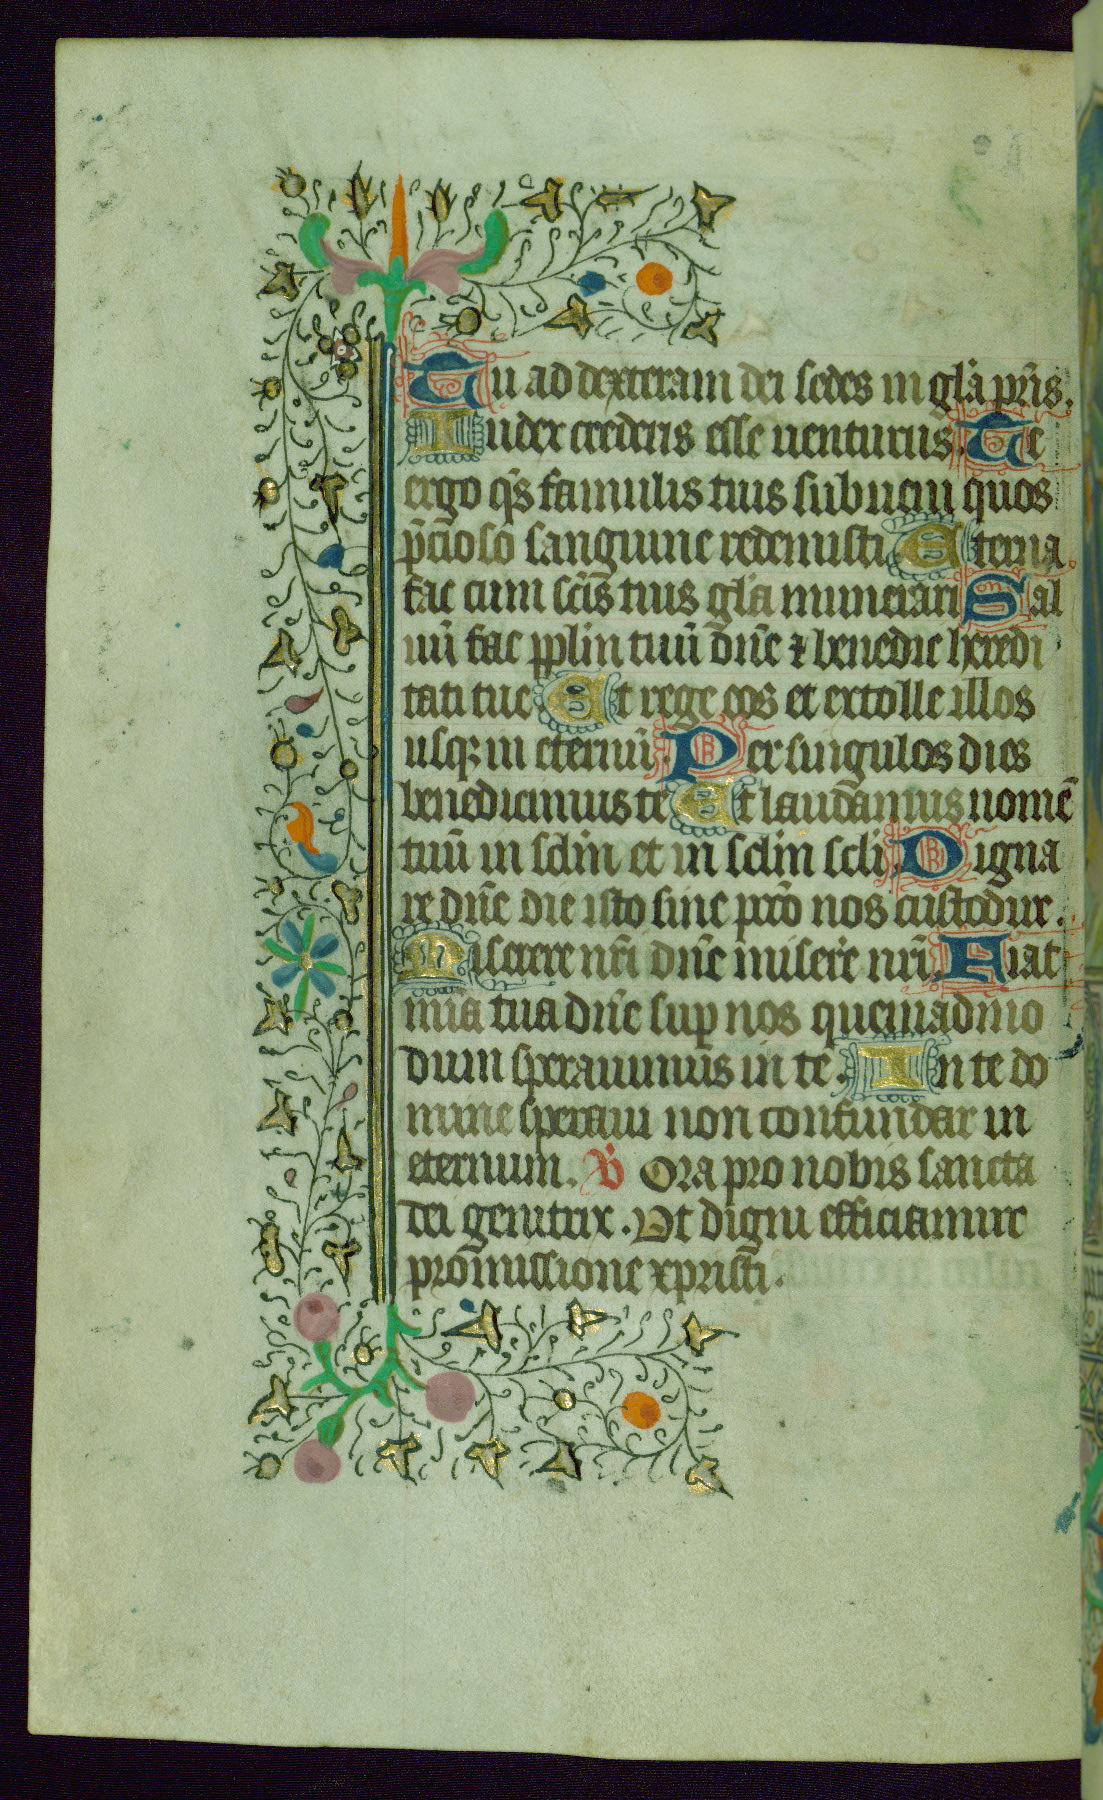 Tu ad dexteram dei sedes in gl̄a pr̄is.
Iudex crederis esse uenturus. Te
ergo qs̄ famulis tuis subueni quos
p̄cioso sanguine redemisti Eterna
fac cum sc̄is tuis gl̄a munerari Sal
uū fac pplm tuū dn̄e ⁊ benedic heredi
tati tue Et rege eos et extolle illos
usqꝫ in eternū. Per singulos dies
benedicimus te Et laudamus nomē
tuū in sc̄lm et in sc̄lm sc̄li. Digna
re dn̄e die isto sine pc̄cō nos custodire.
Miserere nr̄i dn̄e misere̓ nr̄i. Fiat
mīa tua dn̄e suꝑ nos quemadmo
dum sperauimus in te. In te do
mine speraui non confundar in
eternum. ℣ Ora pro nobis sancta
dei genitrix. Ut digni efficiamur
promissione xpristi.